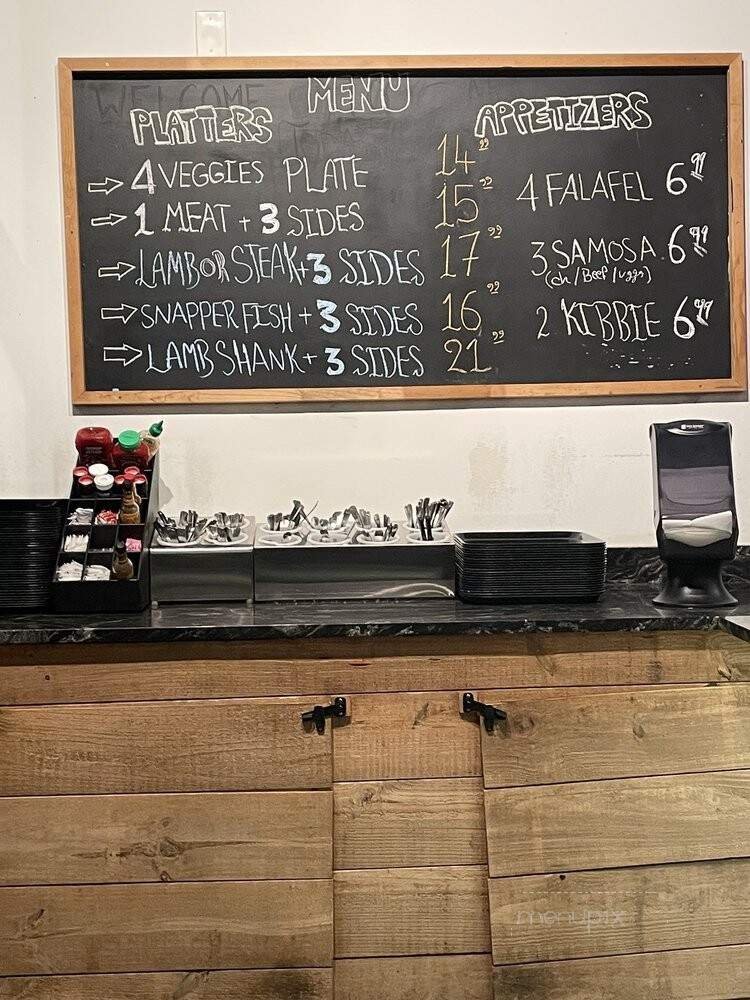 WELCOME
MENU
PLATTERS
4 VEGGIES PLATE 14.99
1 MEAT + 3 SIDES 15.99
LAMB OR STEAK + 3 SIDES 17.99
SNAPPER FISH + 3 SIDES 16.99
LAMB SHANK + 3 SIDES 21.99
APPETIZERS
4 FALAFEL 6.99
3 SAMOSA 6.99
(ch/Beef/veggs)
2 KIBBIE 6.99
menupix